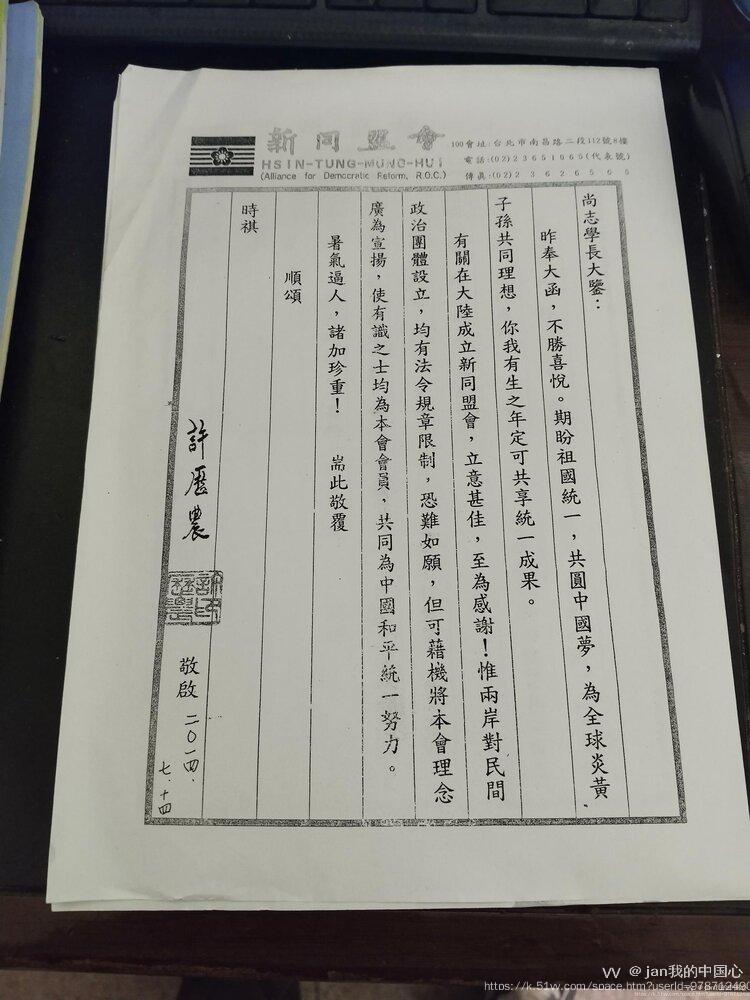 新同盟會
HSIN-TUNG-MUNG-HUI
(Alliance for Democratic Reform, R.O.C.)
100會址:台北市南昌路二段112號8樓
電話:(02)23651065(代表號)
傳真:(02)23626505
尚志學長大鑒:
昨奉大函,不勝喜悅。期盼祖國統一,共圓中國夢,為全球炎黃
子孫共同理想,你我有生之年定可共享統一成果。
有關在大陸成立新同盟會,立意甚佳,至為感謝!惟兩岸對民間
政治團體設立,均有法令規章限制,恐難如願,但可藉機將本會理念
廣為宣揚,使有識之士均為本會會員,共同為中國和平統一努力。
暑氣逼人,諸加珍重! 耑此敬覆
順頌
時祺
許歷農
敬啟 二〇一四、
七、十四
@ jan我的中国心